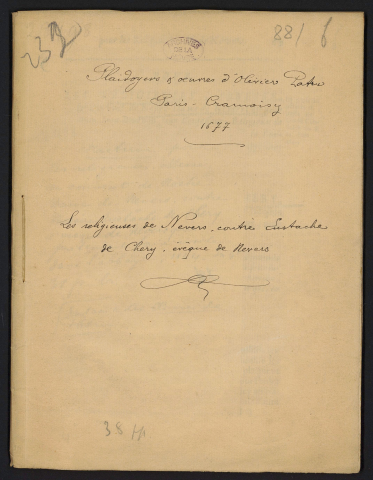 232
88/6
Plaidoyers & œuvres d'Olivier Patru
Paris - Cramoisy
1677
Les religieuses de Nevers, contre Eustache
de Chéry, évêque de Nevers
38